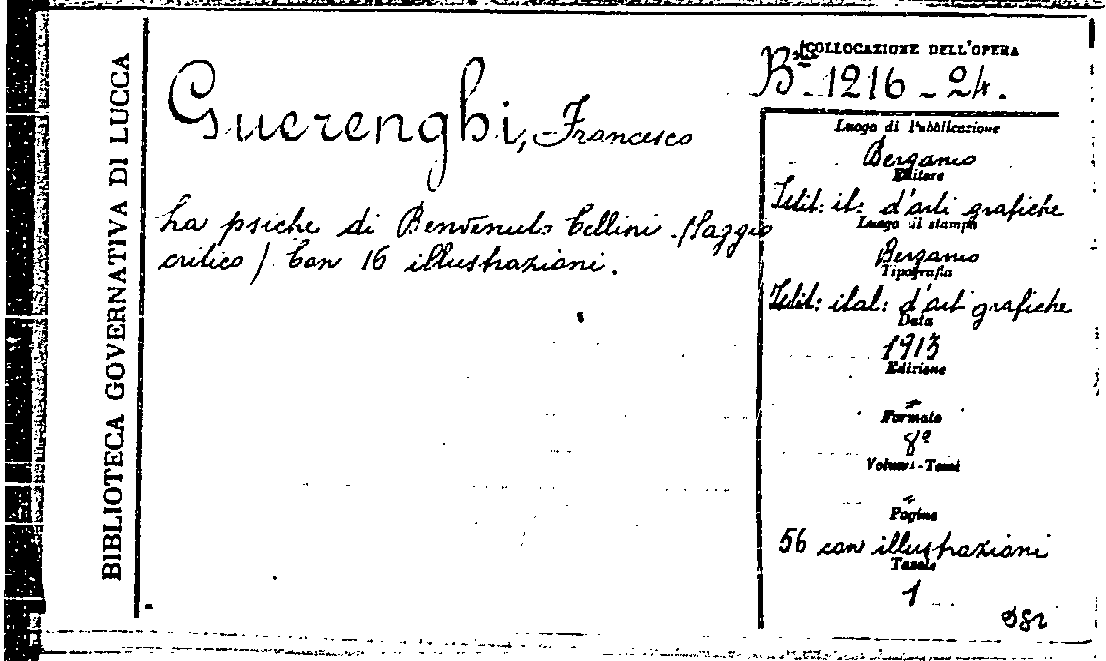 BIBLIOTECA GOVERNATIVA DI LUCCA
Guerenghi, Francesco
La psiche di Benvenuto Cellini. (Saggio
critico) Con 16 illustrazioni.
COLLOCAZIONE DELL'OPERA
1216-24.
Luogo di Pubblicazione
Bergamo
Editore
Istit: it: d'arti grafiche
Luogo di stampa
Bergamo
Tipografia
Istit: ital: d'arti grafiche
Data
1913
Edizione
Formato
8º
Volumi-Tomi
Pagine
56 con illustrazioni
Tavole
1